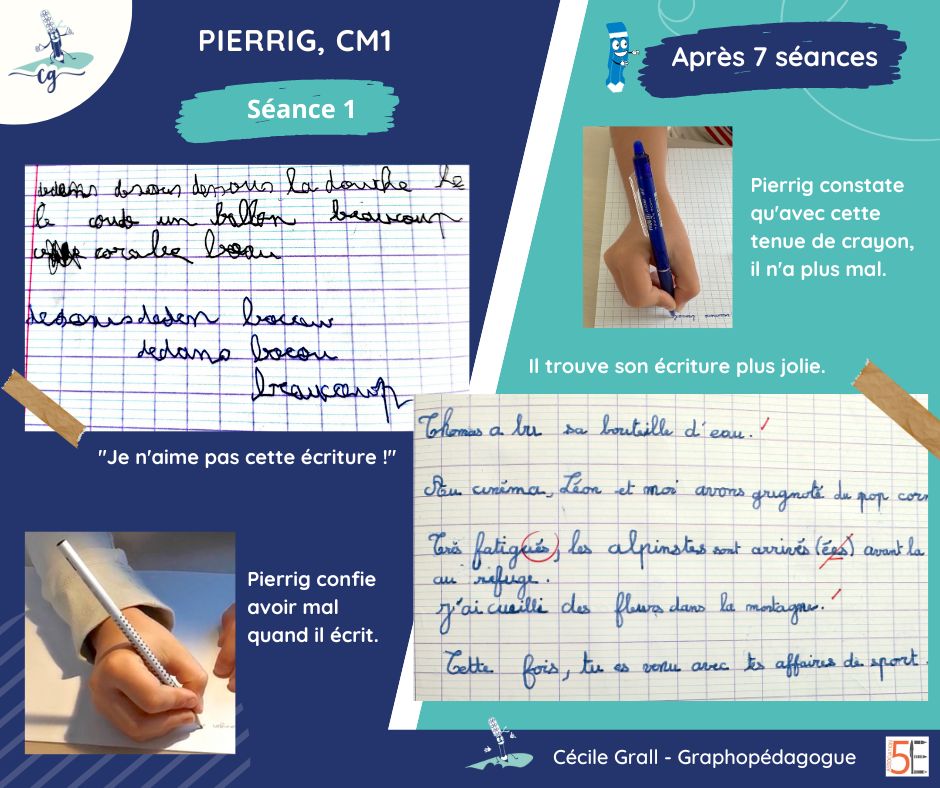 cg
PIERRIG, CM1
Séance 1
dedans desous dessous la douche le
le coude un ballon beaucoup
corabe beau
desous deden bocou
dedans bocou
beaucoup
"Je n'aime pas cette écriture !"
Pierrig confie
avoir mal
quand il écrit.
Après 7 séances
Pierrig constate
qu'avec cette
tenue de crayon,
il n'a plus mal.
Il trouve son écriture plus jolie.
Thomas a bu sa bouteille d'eau.
Au cinéma, Léon et moi avons grignoté du pop corn
Très fatigués, les alpinstes sont arrivés (ées) avant la
au refuge.
J'ai cueilli des fleurs dans la montagne.
Cette fois, tu es venu avec tes affaires de sport.
Cécile Grall - Graphopédagogue
5E